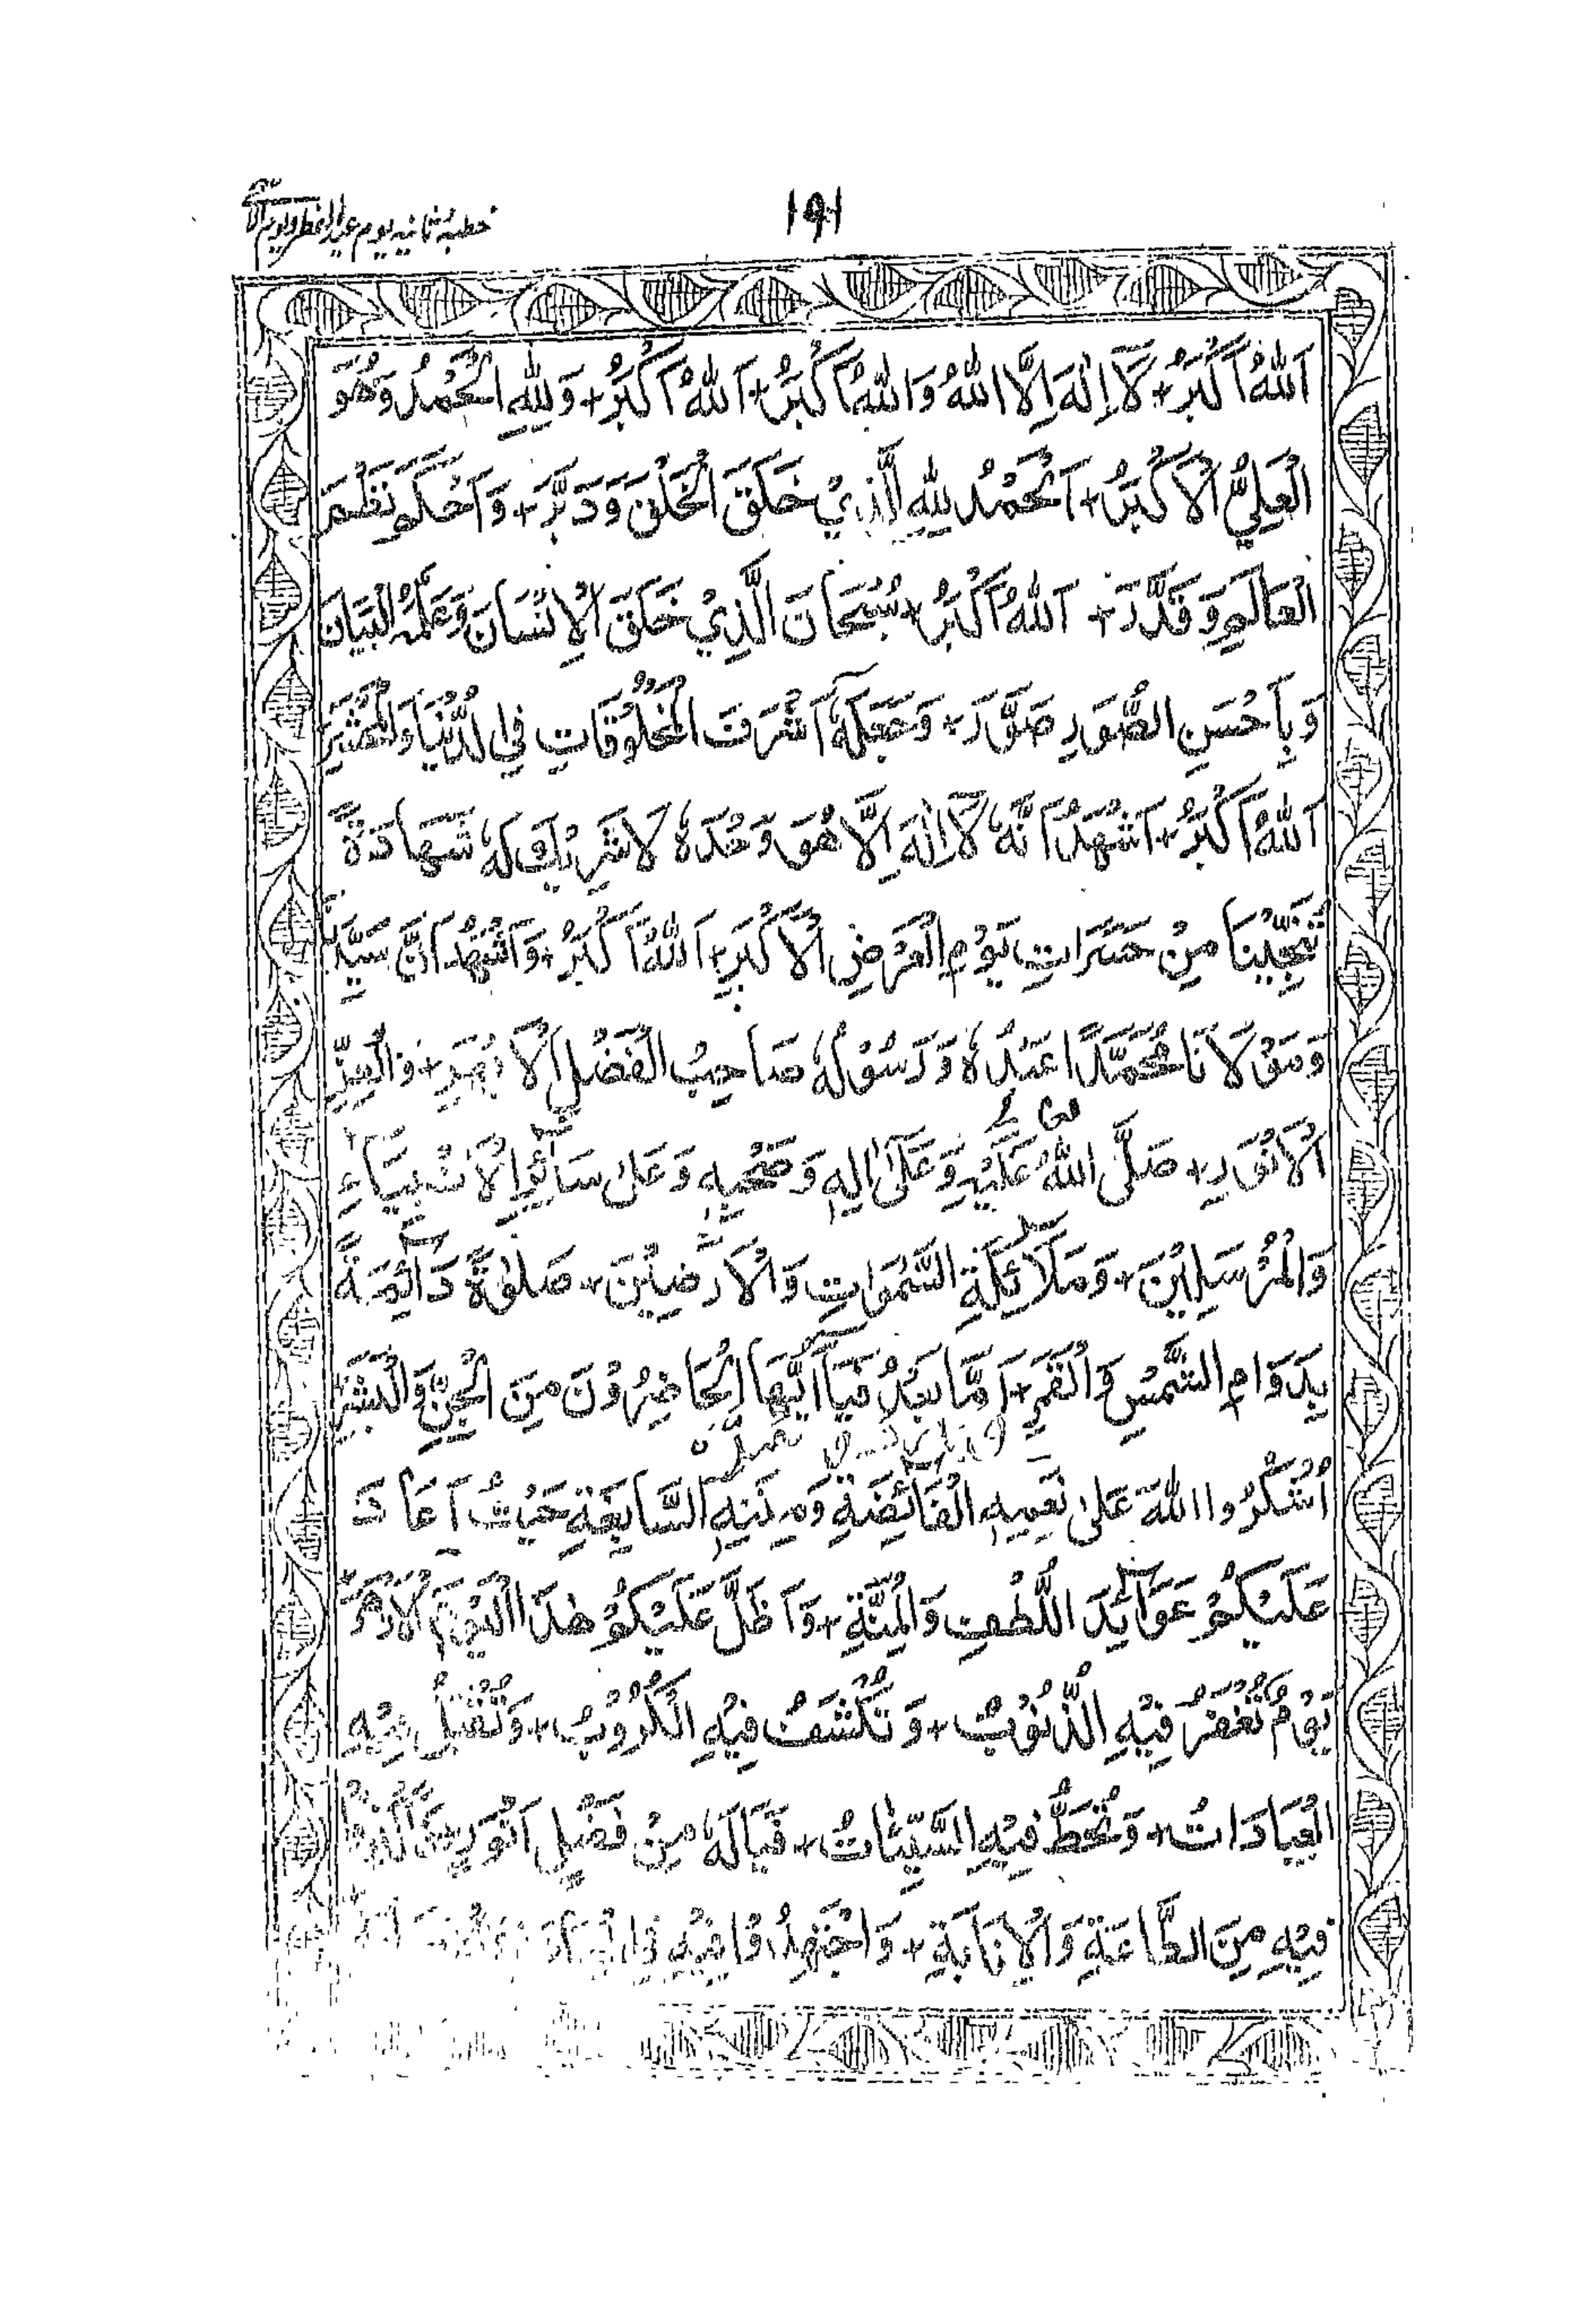 ١٩١
خطبۂ ثانیہ یوم عید الفطر ویوم
اَللّٰهُ اَكْبَرُ + لَآ اِلٰهَ اِلَّا اللّٰهُ وَاللّٰهُ اَكْبَرُ + اَللّٰهُ اَكْبَرُ + وَلِلّٰهِ الْحَمْدُ وَهُوَ
الْعَلِيُّ الْاَكْبَرُ + اَلْحَمْدُ لِلّٰهِ الَّذِيْ خَلَقَ الْخَلْقَ وَدَبَّرَ + وَاَحْكَمَ نَظْمَ
الْعَالَمِ وَقَدَّرَ + اَللّٰهُ اَكْبَرُ + سُبْحَانَ الَّذِيْ خَلَقَ الْاِنْسَانَ وَعَلَّمَهُ الْبَيَانَ
وَبِاَحْسَنِ الصُّوَرِ صَوَّرَ + وَجَعَلَهٗ اَشْرَفَ الْمَخْلُوْقَاتِ فِي الدُّنْيَا وَالْمَحْشَرِ
اَللّٰهُ اَكْبَرُ + اَشْهَدُ اَنَّهٗ لَآ اِلٰهَ اِلَّا هُوَ وَحْدَهٗ لَا شَرِيْكَ لَهٗ شَهَادَةً
تُنَجِّيْنَا مِنْ حَسَرَاتِ يَوْمِ الْعَرْضِ الْاَكْبَرِ + اَللّٰهُ اَكْبَرُ + وَاَشْهَدُ اَنَّ سَيِّدَنَا
وَمَوْلَانَا مُحَمَّدًا عَبْدُهٗ وَرَسُوْلُهٗ صَاحِبُ الْفَضْلِ الْاَبْهَرِ + وَالْعِزِّ
الْاَنْوَرِ + صَلَّى اللّٰهُ عَلَيْهِ وَعَلٰى اٰلِهٖ وَصَحْبِهٖ وَعَلٰى سَائِرِ الْاَنْبِيَاءِ
وَالْمُرْسَلِيْنَ + وَمَلَائِكَةِ السَّمٰوَاتِ وَالْاَرَضِيْنَ + صَلٰوةً دَائِمَةً
بِدَوَامِ الشَّمْسِ وَالْقَمَرِ + اَمَّا بَعْدُ فَيَا اَيُّهَا الْحَاضِرُوْنَ مِنَ الْجِنِّ وَالْبَشَرِ
اُشْكُرُوا اللّٰهَ عَلٰى نِعَمِهِ الْفَائِضَةِ وَمِنَنِهِ السَّابِغَةِ حَيْثُ اَعَادَ
عَلَيْكُمْ عَوَائِدَ اللُّطْفِ وَالْمِنَّةِ + وَاَظَلَّ عَلَيْكُمْ هٰذَا الْيَوْمَ الْاَزْهَرَ
يَوْمٌ تُغْفَرُ فِيْهِ الذُّنُوْبُ + وَتُكْشَفُ فِيْهِ الْكُرُوْبُ + وَتُقْبَلُ فِيْهِ
الْعِبَادَاتُ + وَتُحَطُّ فِيْهِ السَّيِّئَاتُ + فَيَالَهٗ مِنْ فَضْلٍ
فِيْهِ مِنَ الطَّاعَةِ وَالْاِنَابَةِ + وَاجْتَهِدُوْا فِيْهِ